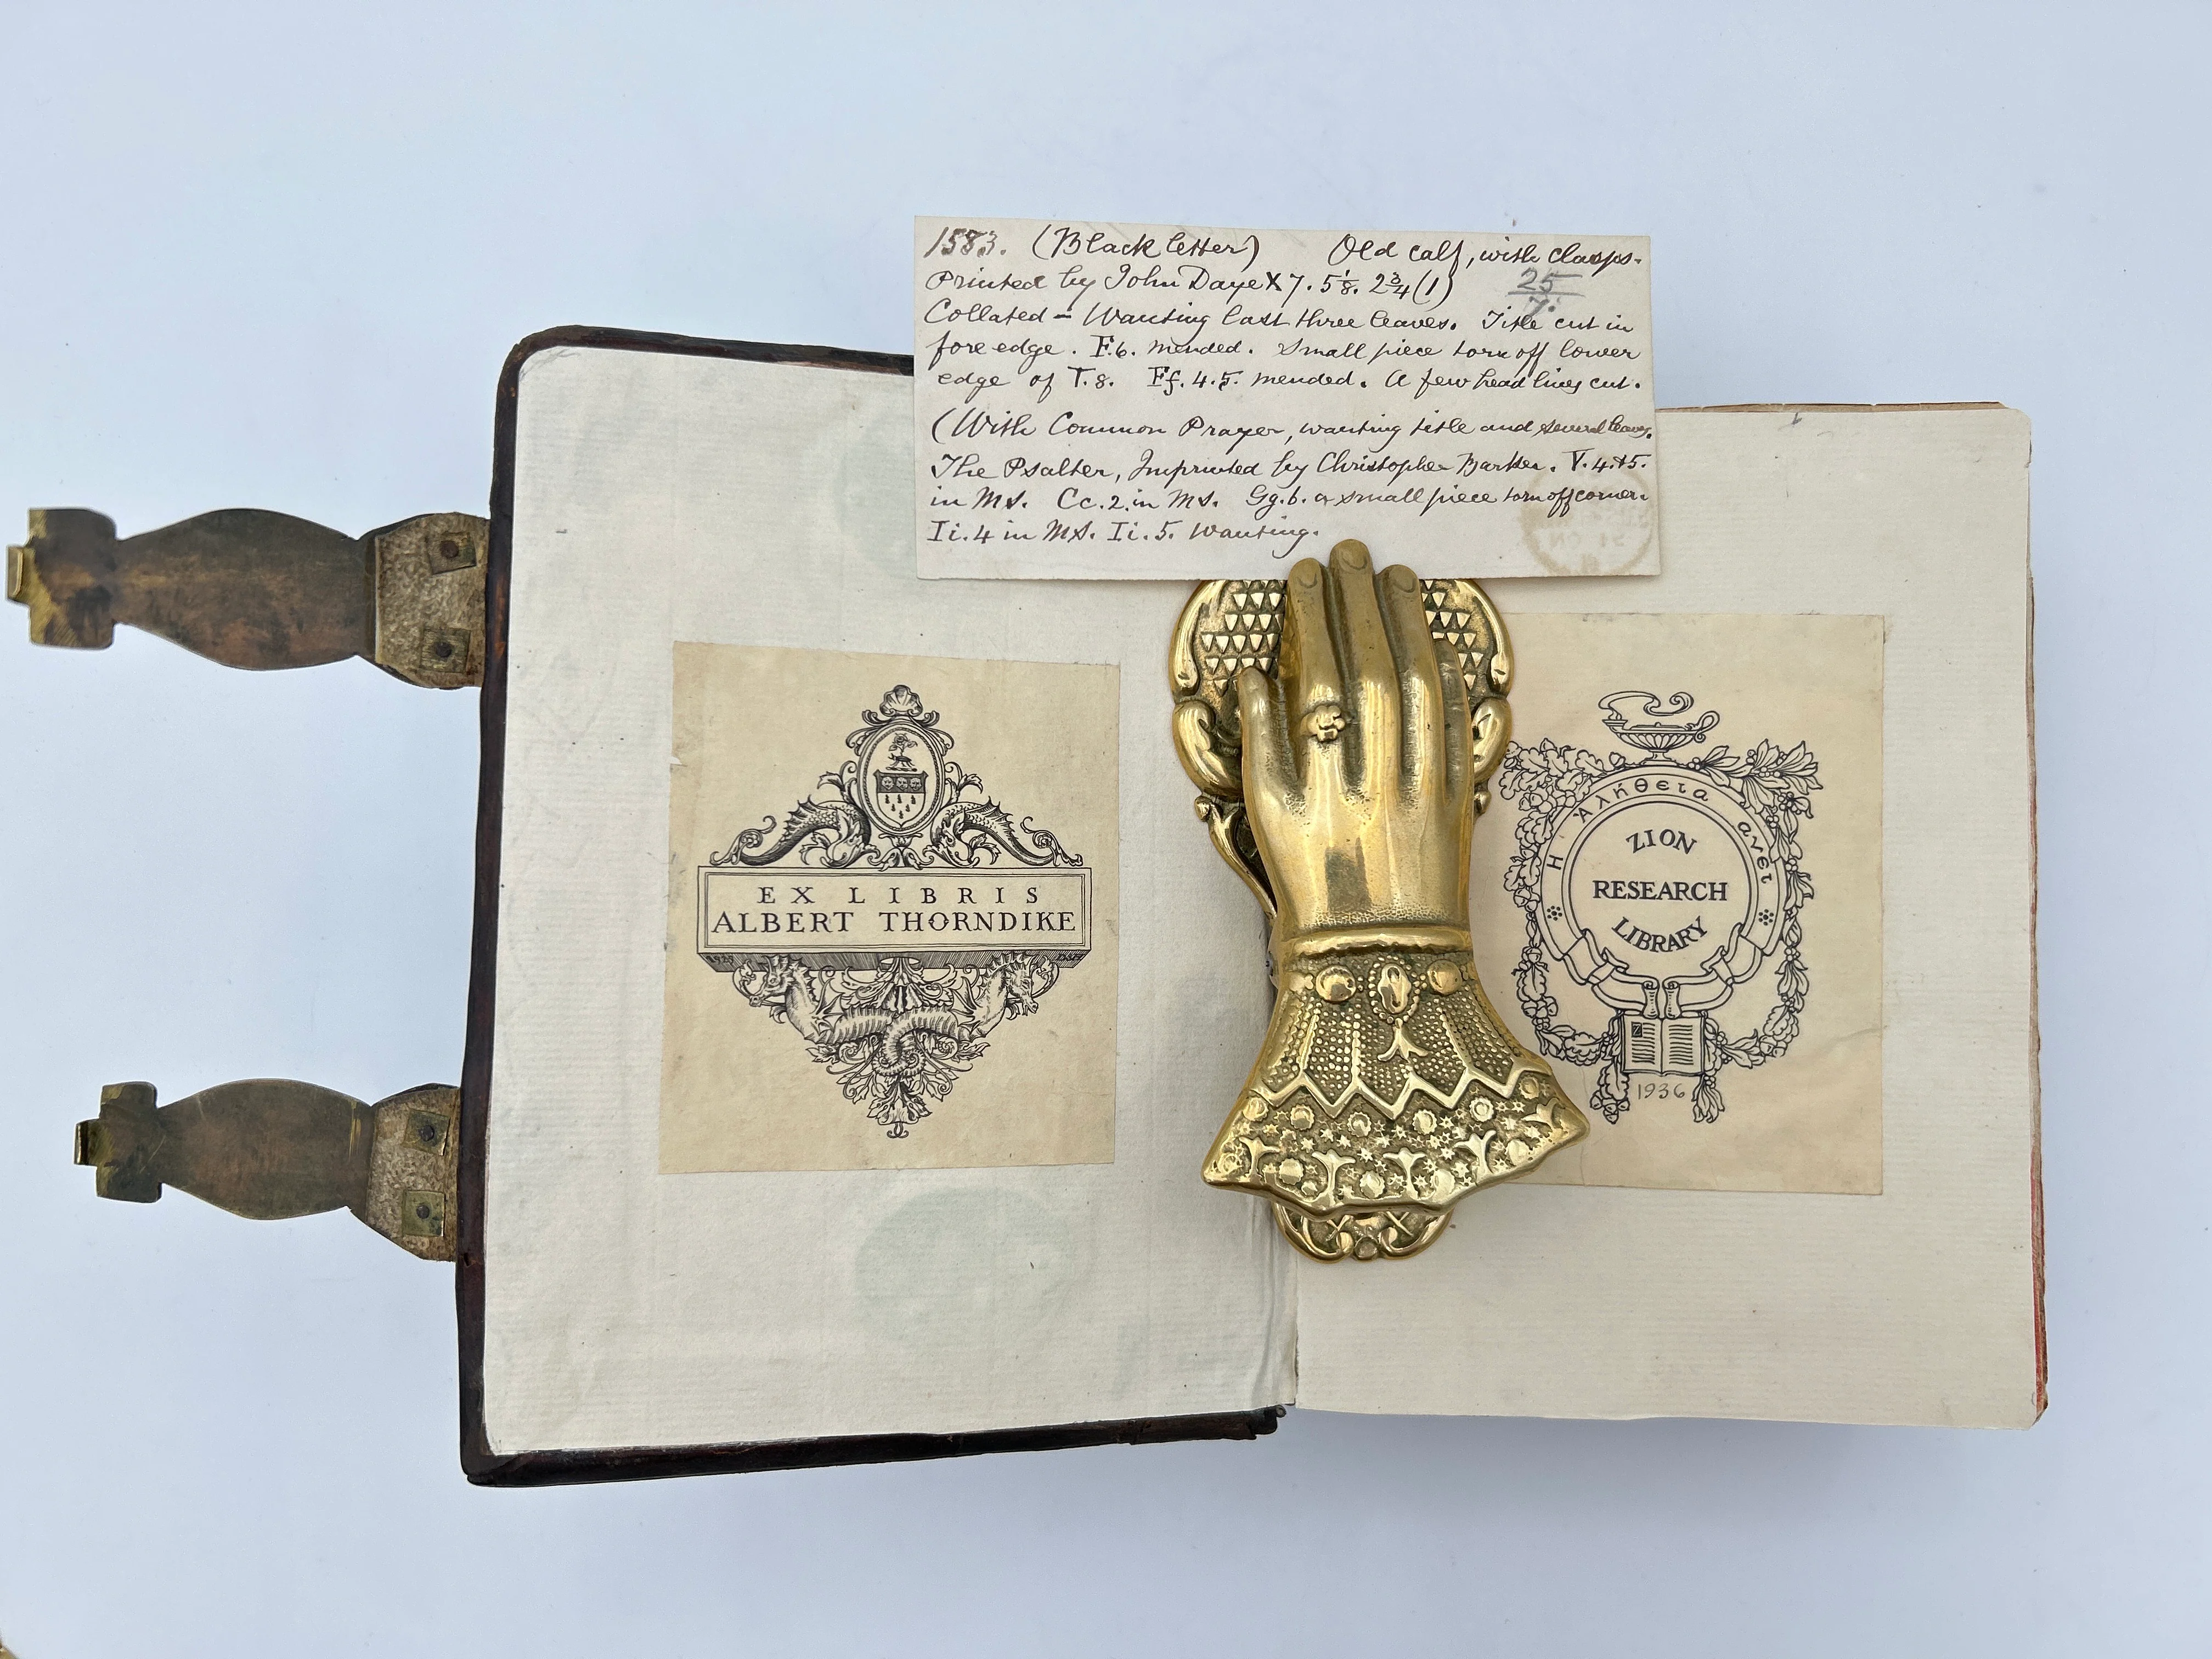 1583. (Black letter) Old calf, with clasps.
Printed by John Daye X 7. 5⅛. 2¾ (1) 25
7.
Collated - Wanting last three leaves. Title cut in
fore edge. F.6. mended. Small piece torn off lower
edge of T.8. Ff. 4.5. mended. A few head lines cut.
(With Common Prayer, wanting title and several leaves.
The Psalter, Imprinted by Christopher Barker. V. 4.+5.
in MS. Cc. 2. in MS. Gg. 6. a small piece torn off corner.
Ii. 4 in MS. Ii. 5. Wanting.
EX LIBRIS
ALBERT THORNDIKE
Η Αλήθεια ανετ
ZION
RESEARCH
LIBRARY
1936